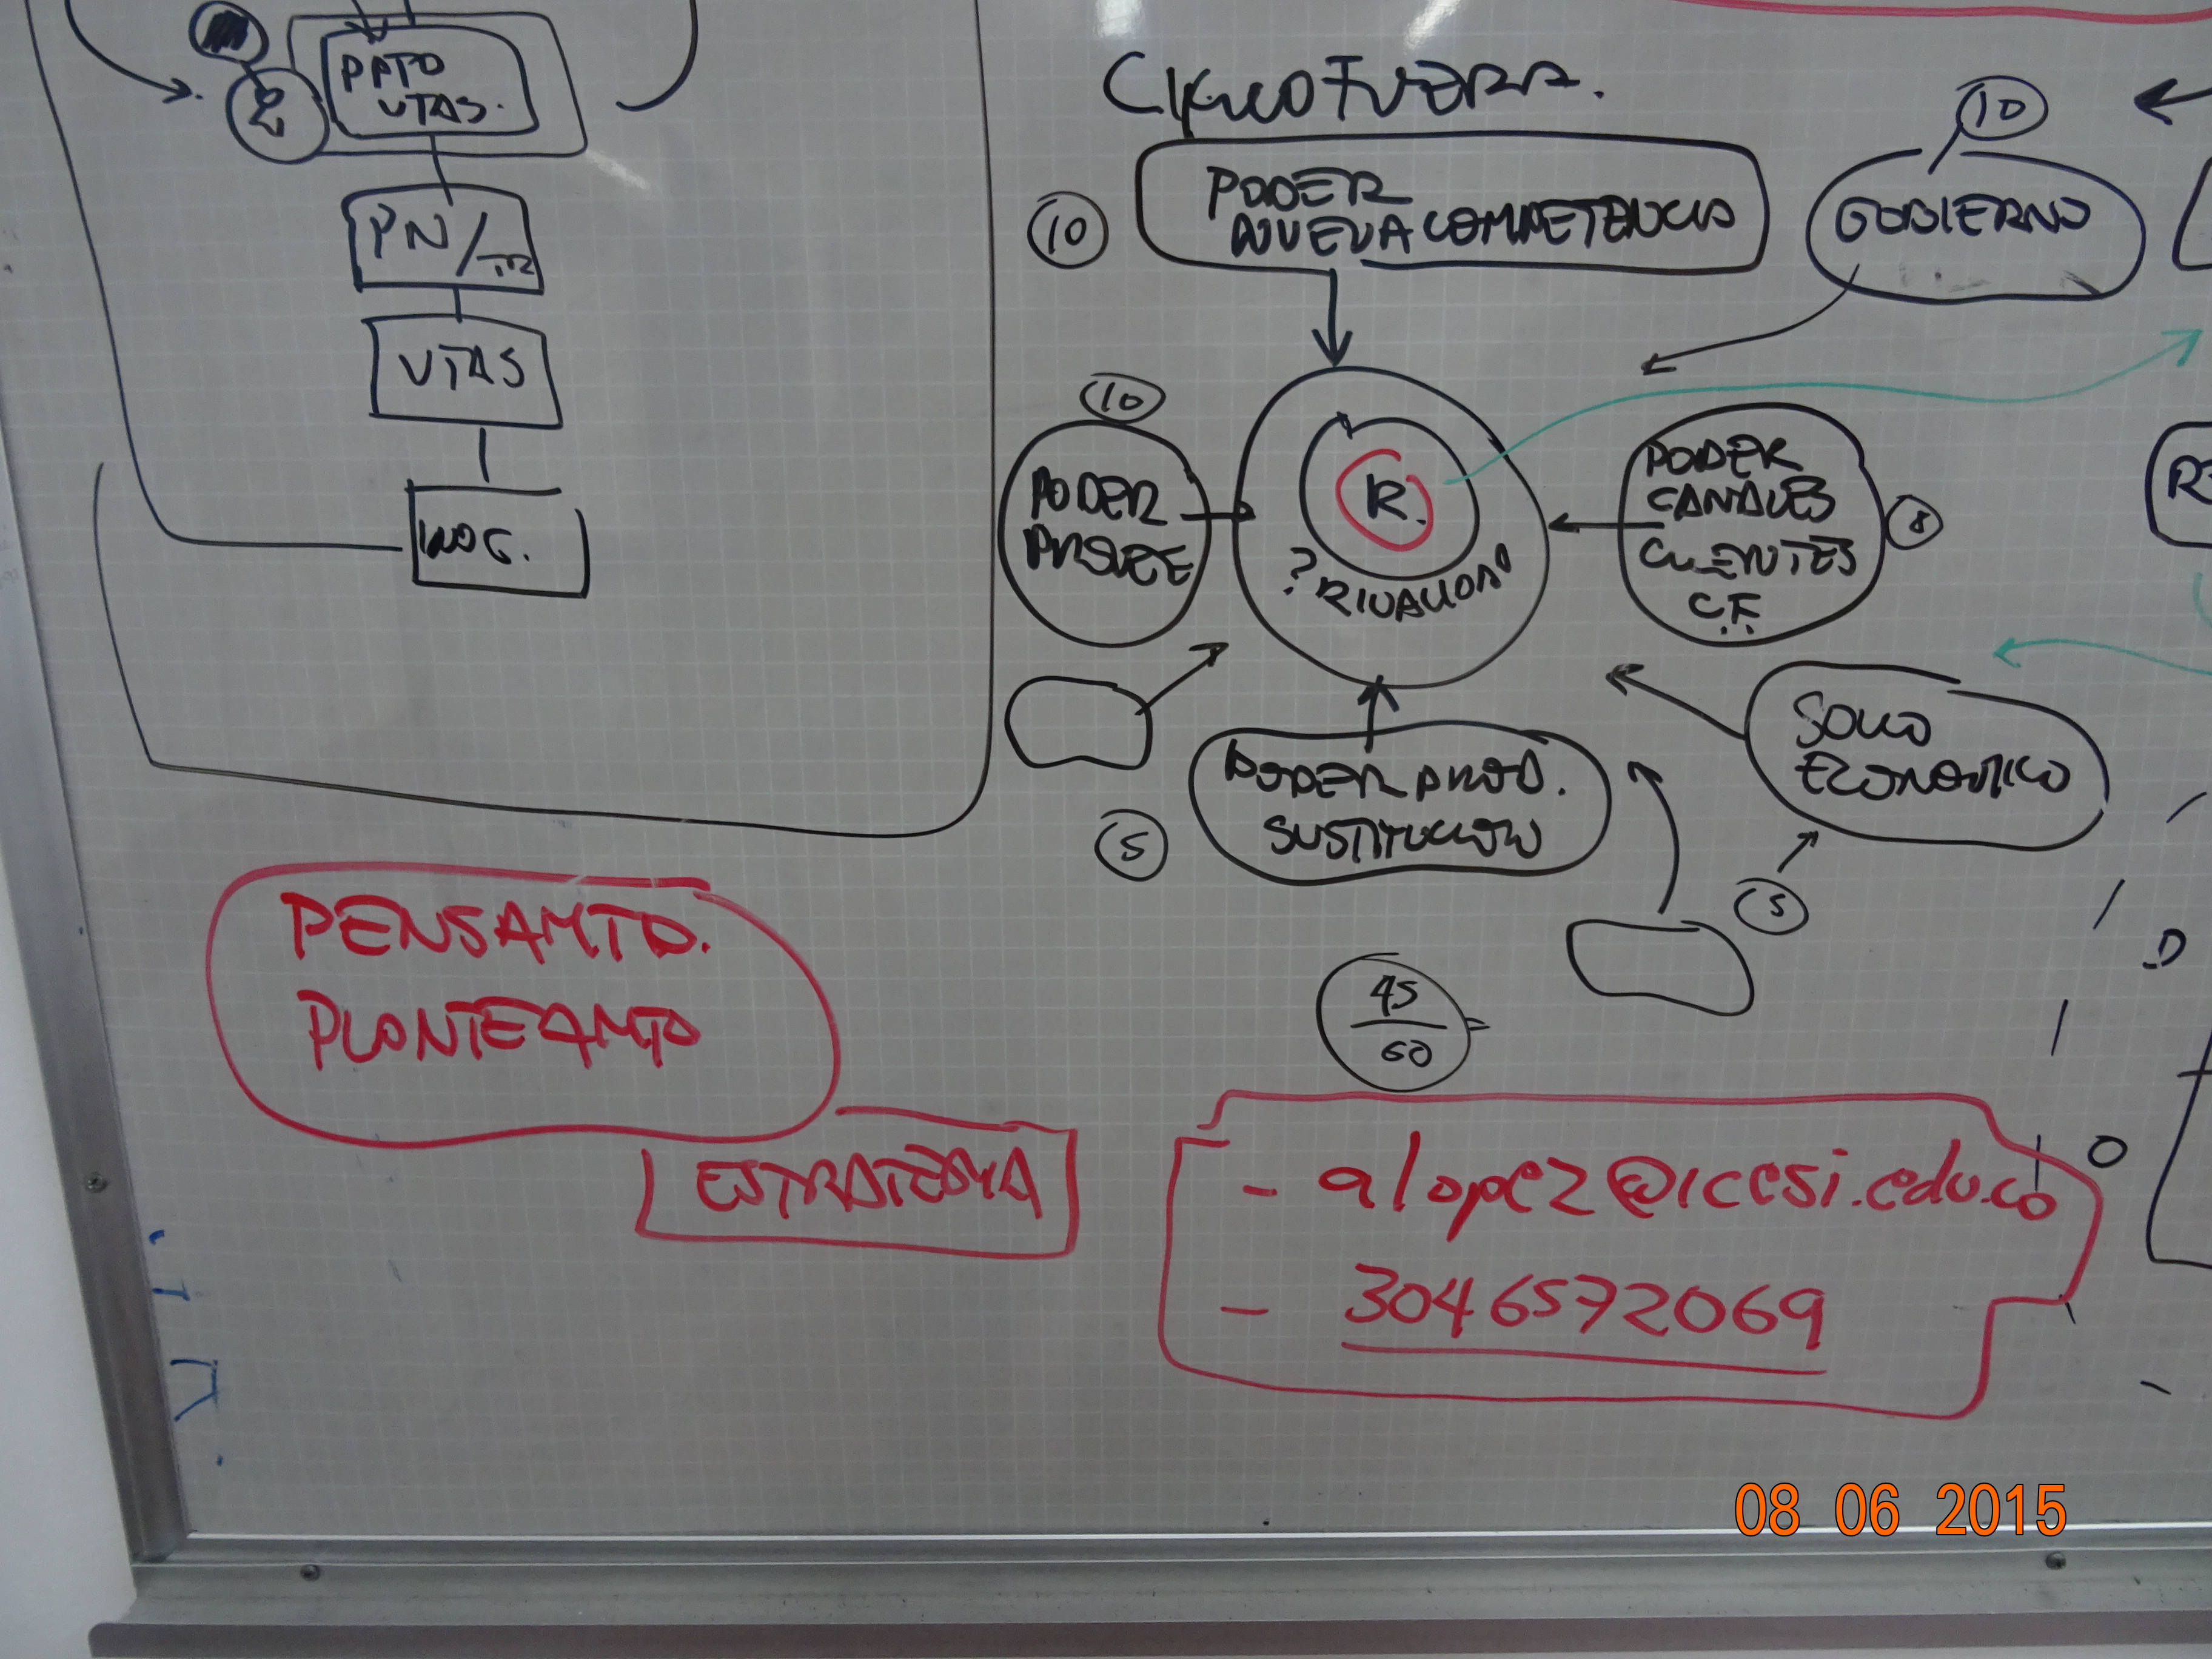 2
PPTO
VTAS.
PN/TR
VTAS
FUERA.
10
PODER
NUEVA COMPETENCIA
10
GOBIERNO
10
PODER
PROVEE
R.
? RIVALIDAD
PODER
CANALES
CLIENTES
C.F.
8
SOCIO
ECONOMICO
5
PODER PROD.
SUSTITUCION
5
45
60
=
D
O
PENSAMTO.
PLANTEAMTO
ESTRATEGIA
- alopez@icesi.edu.co
- 3046572069
08 06 2015